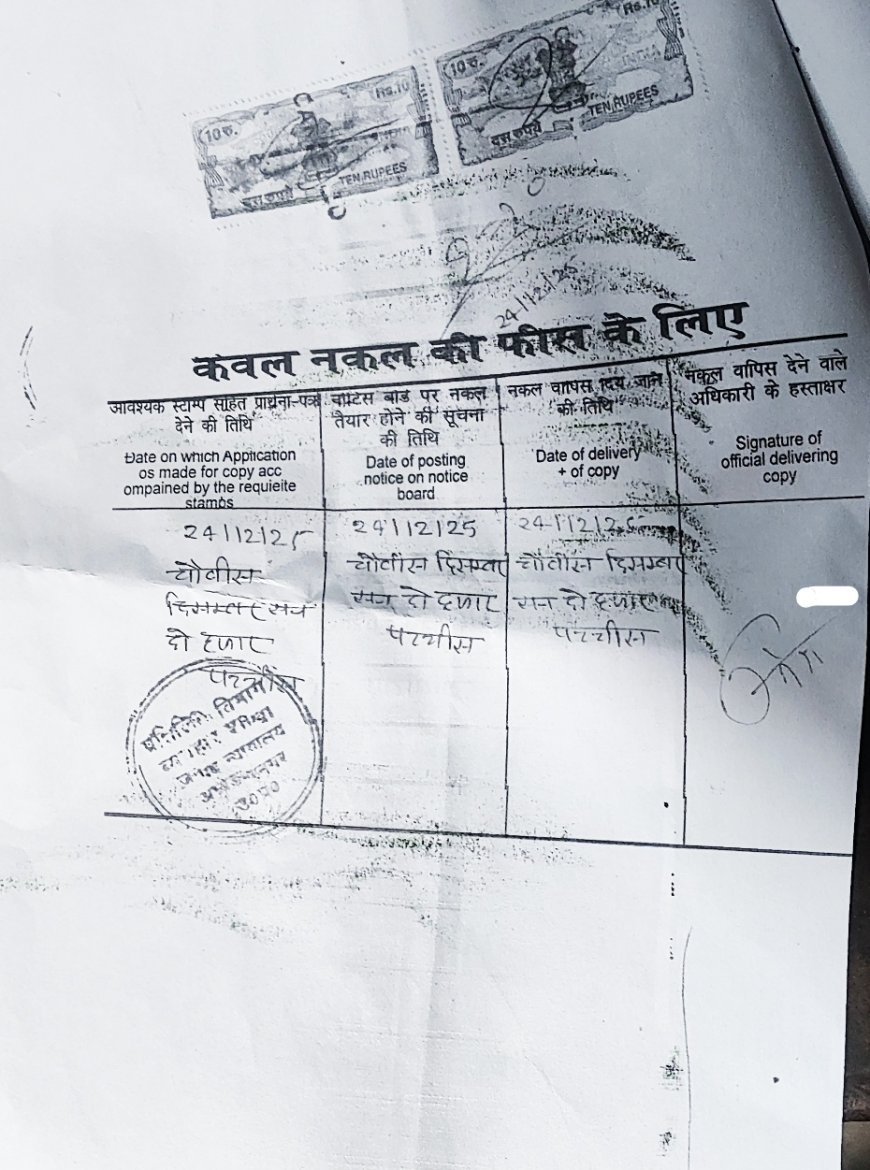 10 रु. Rs.10
दस रुपये TEN RUPEES
10 रु. Rs.10
INDIA
दस रुपये TEN RUPEES
24/12/25
केवल नकल की फीस के लिए
आवश्यक स्टाम्प सहित प्रार्थना-पत्र
देने की तिथि
Date on which Application
os made for copy acc
ompained by the requieite
stamps
नोटिस बोर्ड पर नकल
तैयार होने की सूचना
की तिथि
Date of posting
notice on notice
board
नकल वापिस दिये जाने
की तिथि
Date of delivery
+ of copy
नकल वापिस देने वाले
अधिकारी के हस्ताक्षर
Signature of
official delivering
copy
24/12/25
चौबीस
दिसम्बर सन
दो हजार
पच्चीस
24/12/25
चौबीस दिसम्बर
सन दो हजार
पच्चीस
24/12/25
चौबीस दिसम्बर
सन दो हजार
पच्चीस
प्रतिलिपि विभाग
जनपद न्यायालय
उ०प्र०